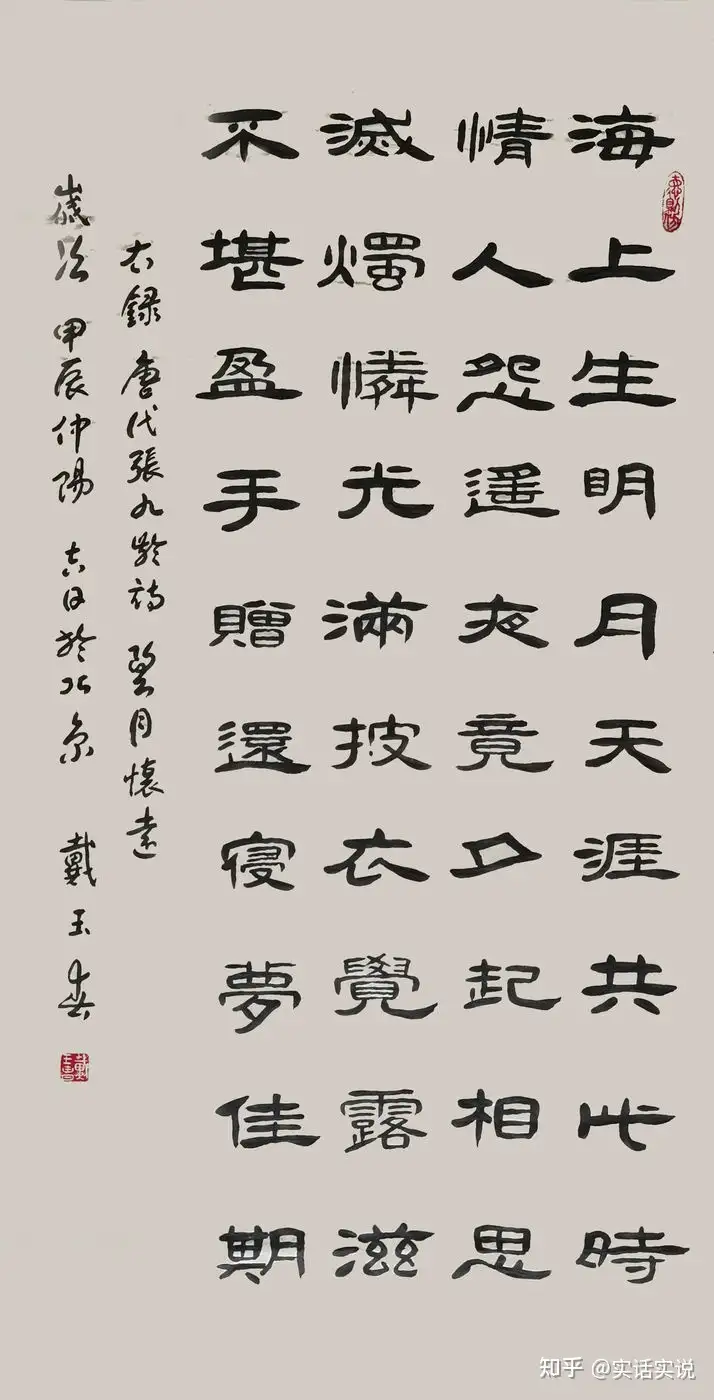 海上生明月天涯共此時
情人怨遥夜竟夕起相思
滅燭憐光滿披衣覺露滋
不堪盈手贈還寝夢佳期
右録唐代張九齡詩望月懷遠
歲次甲辰仲陽吉日於北京戴玉春
知乎 @实话实说